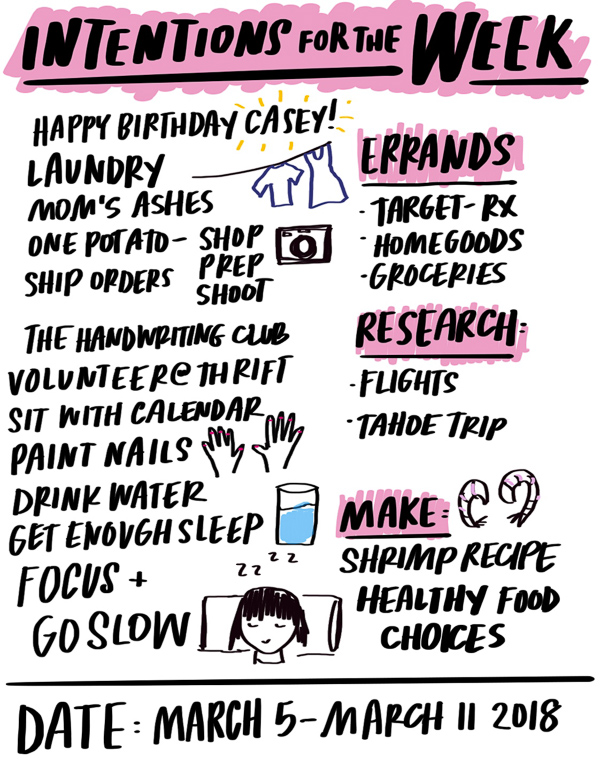 INTENTIONS FOR THE WEEK
HAPPY BIRTHDAY CASEY!
LAUNDRY
MOM'S ASHES
ONE POTATO - SHOP
PREP
SHOOT
SHIP ORDERS
THE HANDWRITING CLUB
VOLUNTEER @ THRIFT
SIT WITH CALENDAR
PAINT NAILS
DRINK WATER
GET ENOUGH SLEEP
FOCUS +
GO SLOW
zz zz
ERRANDS
· TARGET - RX
· HOMEGOODS
· GROCERIES
RESEARCH:
· FLIGHTS
· TAHOE TRIP
MAKE:
SHRIMP RECIPE
HEALTHY FOOD
CHOICES
DATE: MARCH 5 - MARCH 11 2018